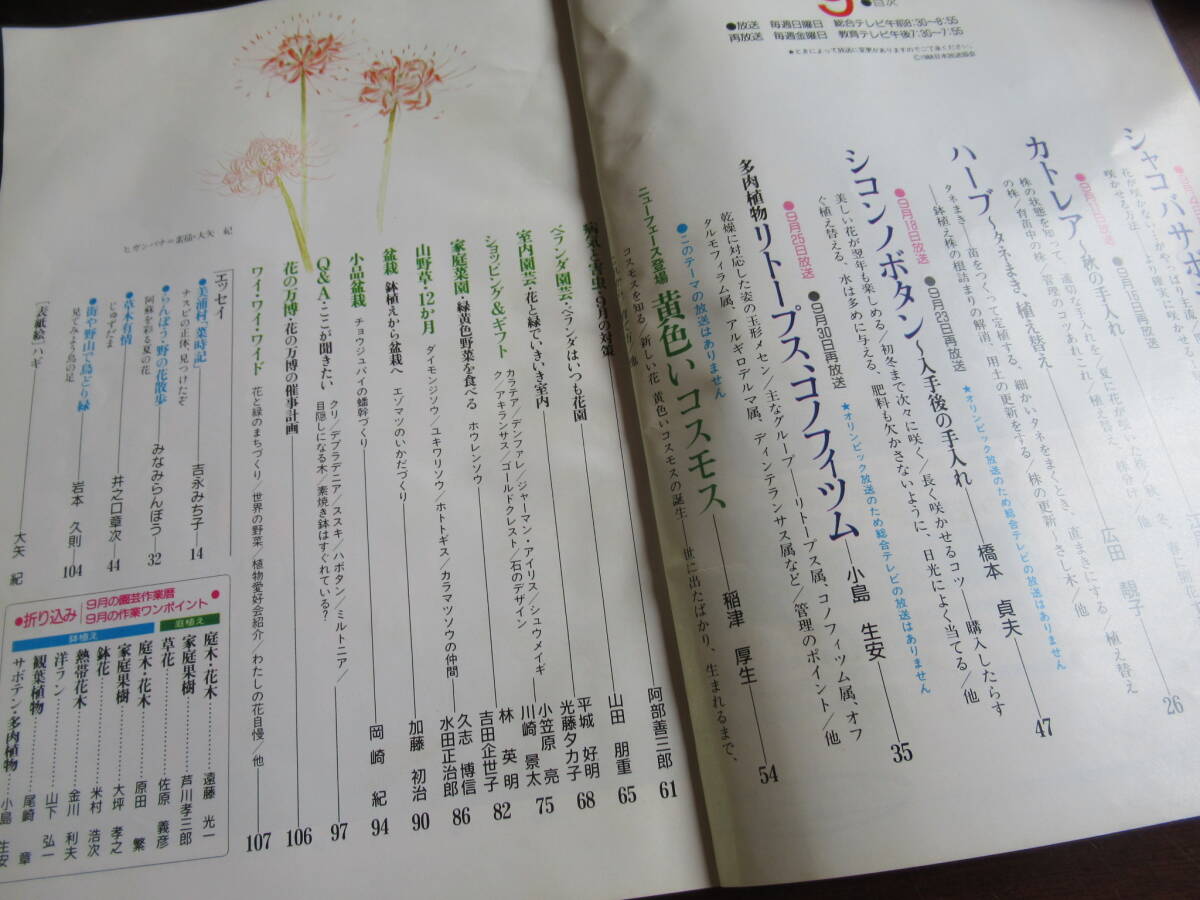 ●目次
●放送 毎週日曜日 総合テレビ午前8:30〜8:55
再放送 毎週金曜日 教育テレビ午後7:30〜7:55
●ときによって放送に変更がありますのでご了承ください。
©1988日本放送協会
シャコバサボ
花が咲かない
咲かせる方法
26
カトレア〜秋の手入れ
株の状態を知って、適切な手入れを
の株/育苗中の株/管理のコツあれこれ/植え替え、株分け/他
広田 靚子
ハーブ〜タネまき、植え替え
タネまき──苗をつくって定植する、細かいタネをまくとき、直まきにする/植え替え
──鉢植え株の根詰まりの解消、用土の更新をする/株の更新〜さし木/他
47
●9月18日放送 ●9月23日再放送 ★オリンピック放送のため総合テレビの放送はありません
シコンノボタン〜入手後の手入れ
橋本 貞夫
美しい花が翌年も楽しめる/初冬まで次々に咲く/長く咲かせるコツ──購入したらす
ぐ植え替える、水は多めに与える、肥料も欠かさないように、日光によく当てる/他
35
●9月25日放送 ●9月30日再放送 ★オリンピック放送のため総合テレビの放送はありません
多肉植物リトープス、コノフィツム
小島 生安
乾燥に対応した姿の玉形メセン/主なグループ──リトープス属、コノフィツム属、オフ
タルモフィラム属、アルギロデルマ属、ディンテランサス属など/管理のポイント/他
54
●このテーマの放送はありません
ニューフェース登場 黄色いコスモス
稲津 厚生
コスモスを知る/新しい花 黄色いコスモスの誕生──世に出たばかり、生まれるまで、
病気と害虫・9月の対策
阿部善三郎 61
ベランダ園芸・ベランダはいつも花園
山田 朋重 65
室内園芸・花と緑でいきいき室内
平城 好明
光藤夕力子 68
ショッピング&ギフト カラテア/デンファレ/ジャーマン・アイリス/シュウメイギ
ク/アキランサス/ゴールドクレスト/石のデザイン
小笠原 亮
川崎 景太 75
林 英明
吉田企世子 82
家庭菜園・緑黄色野菜を食べる ホウレンソウ
久志 博信
水田正治郎 86
山野草・12か月 ダイモンジソウ/ユキワリソウ/ホトトギス/カラマツソウの仲間
加藤 初治 90
盆栽 鉢植えから盆栽へ エゾマツのいかだづくり
岡崎 紀 94
小品盆栽 チョウジュバイの蟠幹づくり
Q&A・ここが聞きたい クリ/デプラデニア/ススキ/ハボタン/ミルトニア/
目隠しになる木/素焼き鉢はすぐれている?
97
花の万博・花の万博の催事計画
106
ワイ・ワイ・ワイド 花と緑のまちづくり/世界の野菜/植物愛好会紹介/わたしの花自慢/他
107
ヒガンバナ=素描・大矢 紀
エッセイ
●美浦村、菜時記
ナスビの正体、見つけたぞ
吉永みち子 14
●らんぼう・野の花散歩
阿蘇を彩る夏の花
みなみらんぼう 32
●草木有情
じゅずだま
井之口章次 44
●街や野山で鳥どり緑
見てみよう鳥の足
岩本 久則 104
[表紙絵]ハギ
大矢 紀
●折り込み
9月の園芸作業暦
9月の作業ワンポイント●
庭植え
庭木・花木 遠藤 光一
家庭果樹 芦川孝三郎
草花 佐原 義彦
鉢植え
庭木・花木 原田 繁
家庭果樹 大坪 孝之
鉢花 米村 浩次
熱帯花木 金川 利夫
洋ラン 山下 弘一
観葉植物 尾崎 章
サボテン・多肉植物 小島 生安